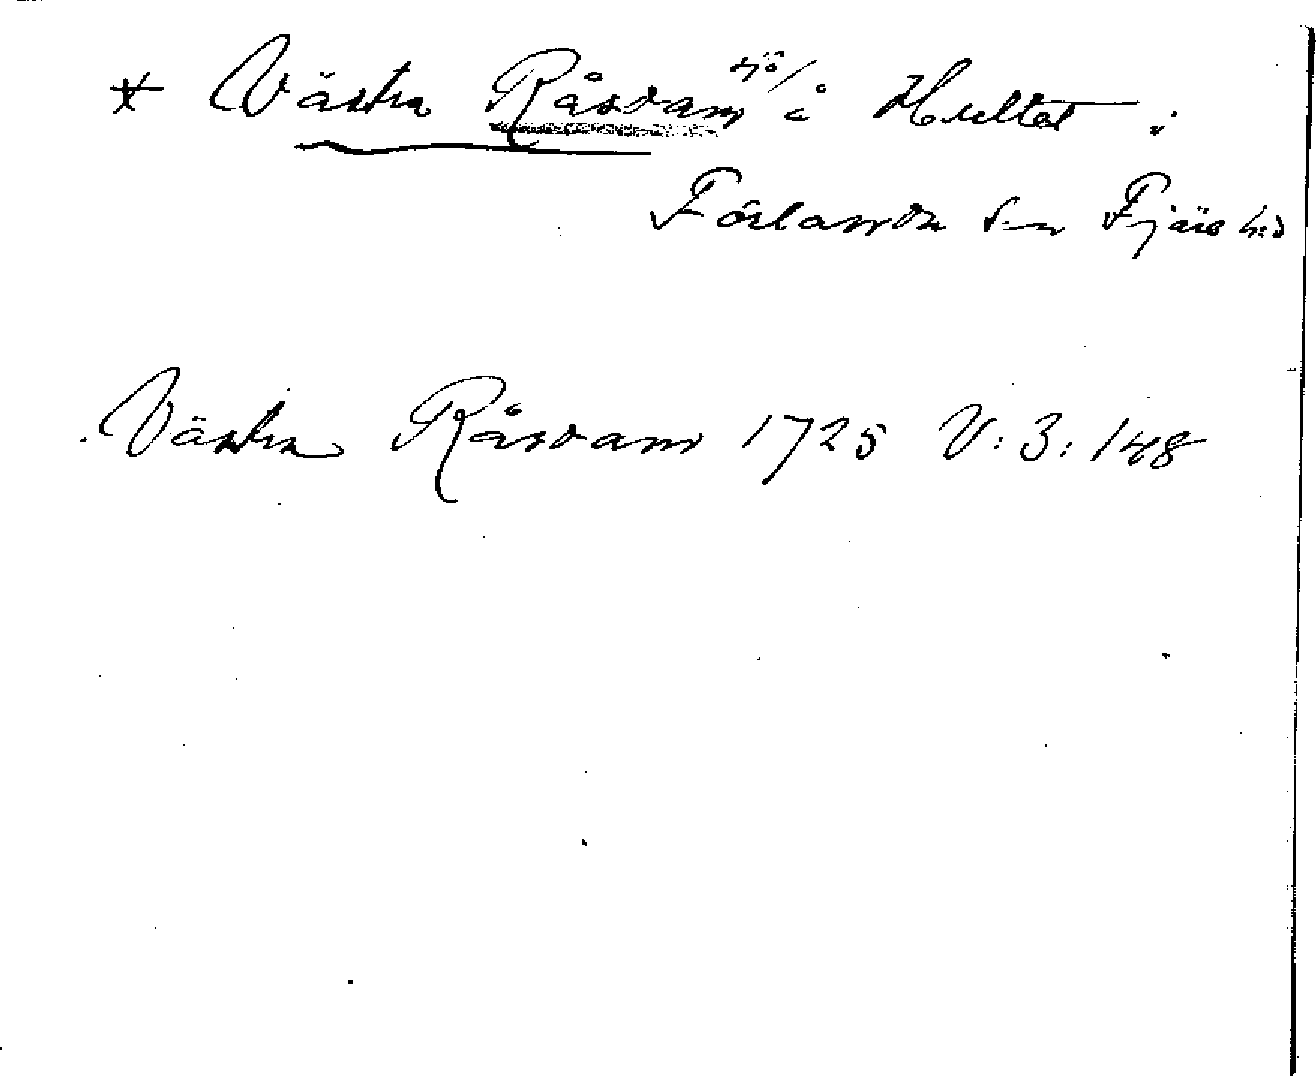 * Västra Råsdam sjö/ å Hultet i
Förlanda sn Fjäre hd
Västra Råsdam 1725 V:3:148